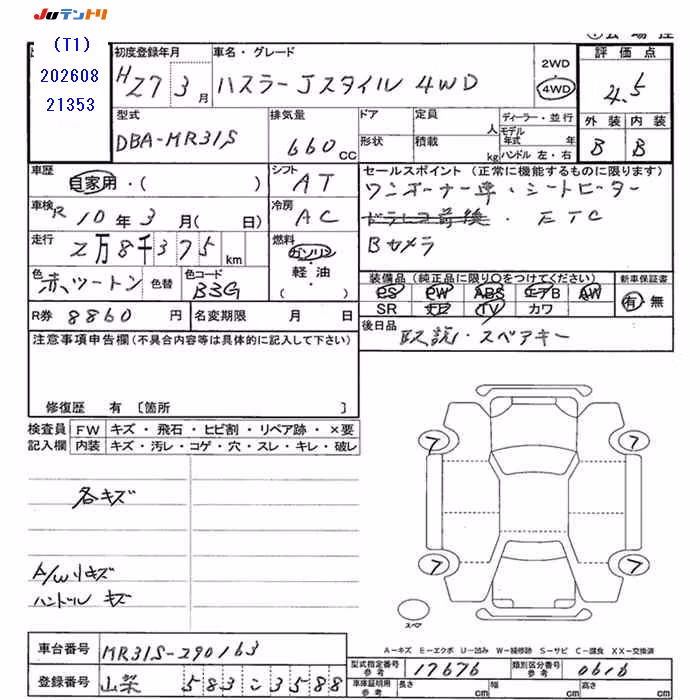 JUテントリ
(T1)
202608
21353
初度登録年月
H27 3月
車名・グレード
ハスラー Jスタイル 4WD
2WD
4WD
評価点
4.5
型式
DBA-MR31S
排気量
660 CC
ドア
定員
人
形状
積載
kg
ディーラー・並行
モデル年式 年
ハンドル 左・右
外装
B
内装
B
車歴
自家用・( )
シフト
AT
セールスポイント (正常に機能するものに限ります)
ワンオーナー車・シートヒーター
ドラレコ前後・ETC
Bカメラ
車検
R10年3月( 日)
冷房
AC
走行
2万8千375km
燃料
ガソリン
・
軽油
( )
色
赤ツートン
色替
色コード
B3G
装備品 (純正品に限り○をつけてください)
PS PW ABS エアB AW
SR ナビ TV カワ
新車保証書
有・無
R券 8860円
名変期限 月 日
後日品
取説・スペアキー
注意事項申告欄(不具合内容等は具体的に記入して下さい)
修復歴 有 〔箇所 〕
検査員記入欄
FW キズ・飛石・ヒビ割・リペア跡・×要
内装 キズ・汚レ・コゲ・穴・スレ・キレ・破レ
各キズ
A/Wリキズ
ハンドル キズ
7
7
7
7
スペア
A-キズ E-エクボ U-凹み W-補修跡 S-サビ C-腐食 XX-交換済
車台番号
MR31S-290163
登録番号
山梨 583 こ 3588
型式指定番号
参考
17676
類別区分番号
参考
0616
車庫証明用
参考
長さ cm
幅 cm
高さ cm